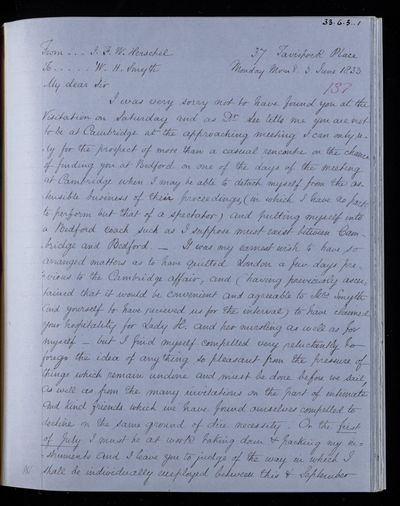 33.6.3..1
From - - - J. F. W. Herschel 37 Tavistock Place
To - - - - - W. H. Smyth Monday Morng. 3 June 1833
137
My dear Sir
I was very sorry not to have found you at the
Visitation on Saturday and as Dr. Lee tells me you are not
to be at Cambridge at the approaching meeting I can only re-
-ly for the prospect of more than a casual rencontre on the chance
of finding you at Bedford on one of the days of the meeting
at Cambridge when I may be able to detach myself from the os-
-tensible business of their proceedings, (in which I have no part
to perform but that of a spectator) and putting myself into
a Bedford coach such as I suppose must exist between Cam-
-bridge and Bedford. — It was my earnest wish to have so
arranged matters as to have quitted London a few days pre-
-vious to the Cambridge affair, and (having previously ascer-
-tained that it would be convenient and agreeable to Mrs Smyth
and yourself to have received us for the interval) to have claimed
your hospitality for Lady H. and her nursling as well as for
myself — but I find myself compelled very reluctantly to
forego the idea of any thing so pleasant from the pressure of
things which remain undone and must be done before we sail,
as well as from the many invitations on the part of intimate
and kind friends which we have found ourselves compelled to
decline on the same ground of dire necessity. On the first
of July I must be at work taking down & packing my in-
-struments and I leave you to judge of the way in which I
shall be individually employed between this & September